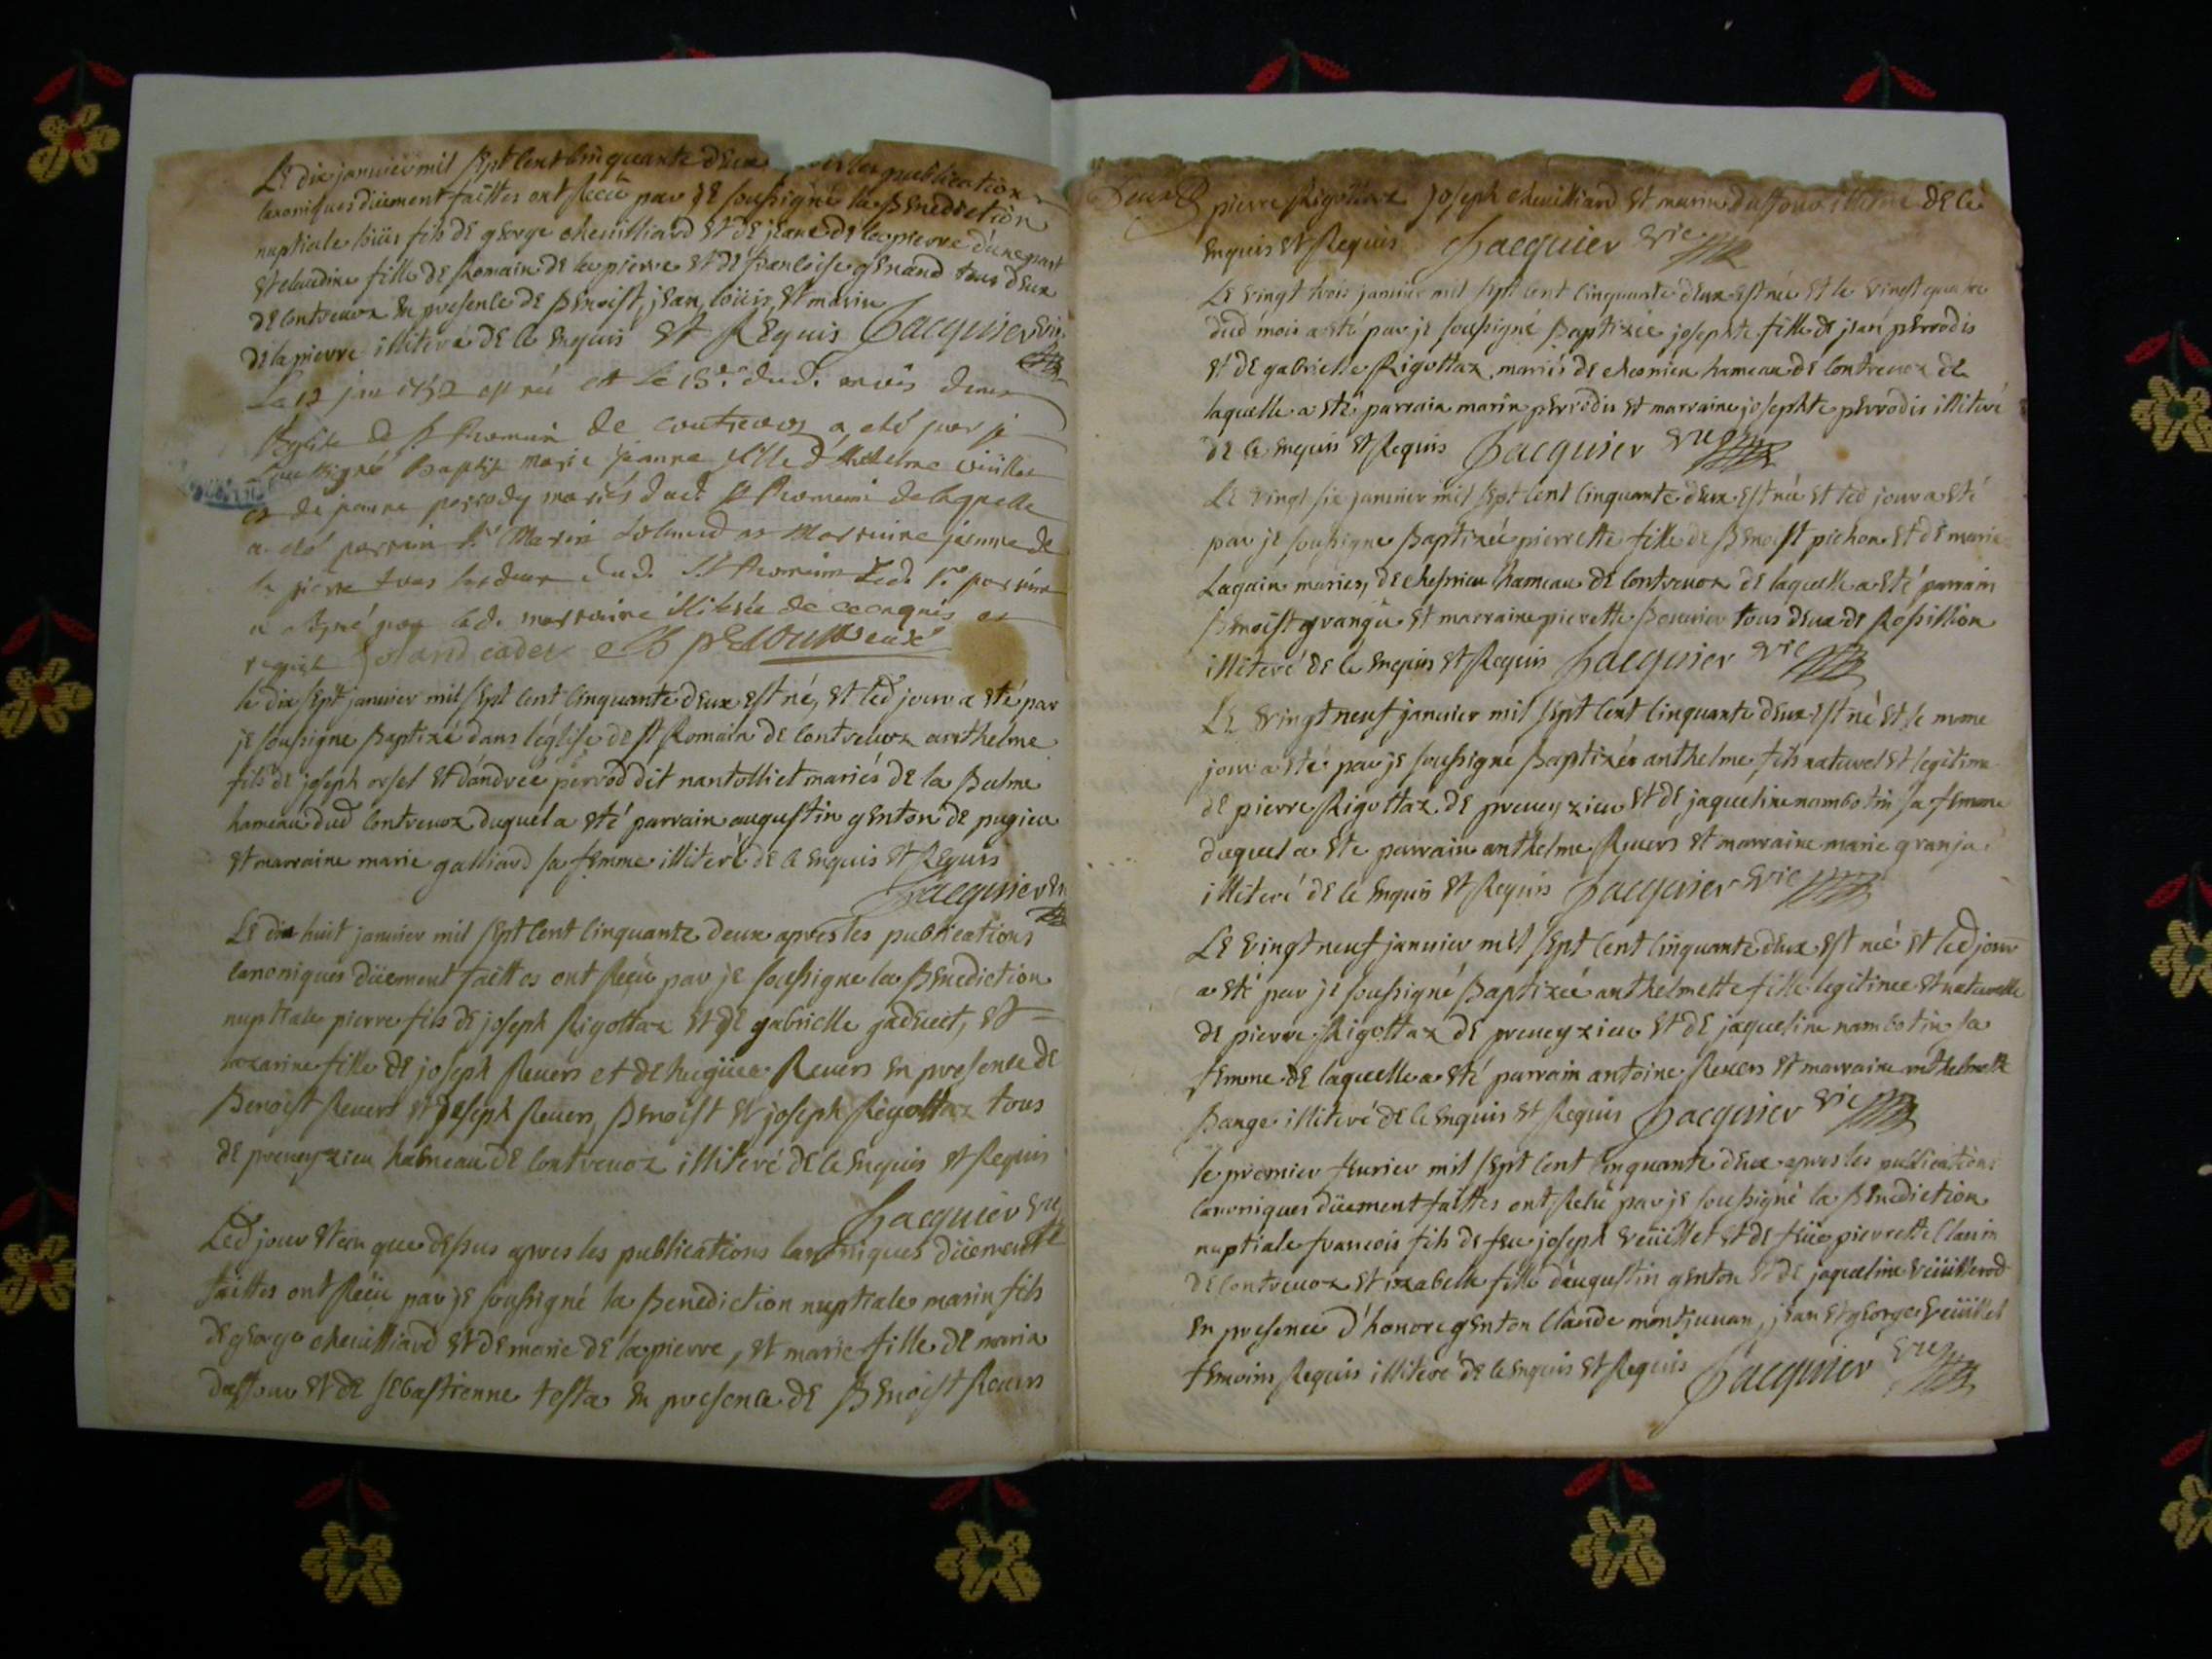 Le dix janvier mil sept cent cinquante deux les publications
canoniques düement faittes ont recü par je soussigné la Benediction
nuptiale loüis fils de george cheuilliard et de jeane de la pierre d'une part
et claudine fille de Romain de la pierre et de francoise genand tous deux
de contrevoz en presence de Benoist, jean, loüis, et marin
de la pierre illiteré de ce enquis et Requis Jacquier vic.
Le 12 jer 1752 est née et le 13e dud. mois dans
l'eglise de st Romain de contrevoz a eté par je
soussigné Baptisé Marie jeanne fille d'Anthelme
et de jeanne perrody mariés dud. st Romain de laquelle
a eté parrain sr Marin et Marraine jeanne de
la pierre tous les deux dud. st Romain led. sr parrain
a signé non lad. marraine illiterée de ce enquis et
requise
le dix sept janvier mil sept cent cinquante deux est né, et led jour a eté par
je soussigne Baptizé dans l'église de st Romain de contrevoz anthelme
fils de joseph orsel et d'andrée perrod dit nantolliet mariés de la Balme
hameau dud contrevoz duquel a eté parrain augustin genton de pugieu
et marraine marie galliard sa femme illiteré de ce enquis et Requis
Jacquier
Le dix huit janvier mil sept cent cinquante deux apres les publications
canoniques düement faittes ont reçü par je soussigne la Benediction
nuptiale pierre fils de joseph Rigottaz et de gabrielle et
mazarine fille de joseph Reuers et de hugüee Reuers en presence de
Benoist Reuers et joseph Reuers, Benoist et joseph Rigottaz tous
de preueyzieu hameau de contrevoz illiteré de ce enquis et Requis
Jacquier vic
Led jour et an que dessus apres les publications canoniques düement
faittes ont reçü par je soussigné la Benediction nuptiale marin fils
de george cheuilliard et de marie de la pierre, et marie fille de marin
duffour et de sebastienne testa en presence de Benoist Reuers
Deux pierre Rigottaz joseph cheuilliard et marin duffour illiteré de ce
enquis et Requis Jacquier vic
Le vingt trois janvier mil sept cent cinquante deux est née et le vingt quatre
dud mois a eté par je soussigné Baptizée josephte fille de jean perrodis
et de gabrielle Rigottaz mariés de hameau de contrevoz de
laquelle a eté parrain marin perrodis et marraine josephte perrodis illiteré
de ce enquis et Requis Jacquier vic
Le vingt six janvier mil sept cent cinquante deux est née et led jour a eté
par je soussigne Baptizée pierrette fille de Benoist pichon et de marie
Lagain mariés, de hameau de contrevoz de laquelle a eté parrain
Benoist et marraine pierrette Bouvier tous deux de Rossillion
illiteré de ce enquis et Requis Jacquier vic
Le vingt neuf janvier mil sept cent cinquante deux est né et le meme
jour a eté par je soussigné Baptizé anthelme fils naturel et legitime
de pierre Rigottaz de preueyzieu et de jaqueline nambotin sa femme
duquel a ete parrain anthelme Reuers et marraine marie granja
illiteré de ce enquis et Requis Jacquier vic
Le vingt neuf janvier mil sept cent cinquante deux est neé et led jour
a eté par je soussigné Baptizée anthelmette fille legitime et naturelle
de pierre Rigottaz de preueyzieu et de jaqueline nambotin sa
femme de laquelle a eté parrain antoine Reuers et marraine anthelmette
Bange illiteré de ce enquis et Requis Jacquier vic
le premier feurier mil sept cent cinquante deux apres les publications
canoniques düement faittes ont Receu par je soussigné la Benediction
nuptiale francois fils de feu joseph veüillet et de feüe pierrette
de contrevoz et izabelle fille d'augustin genton et de jaqueline veüillerod
en presence d'honore genton claude montjuuan, jean et george veüillet
temoins Requis illiteré de ce enquis et Requis Jacquier vic